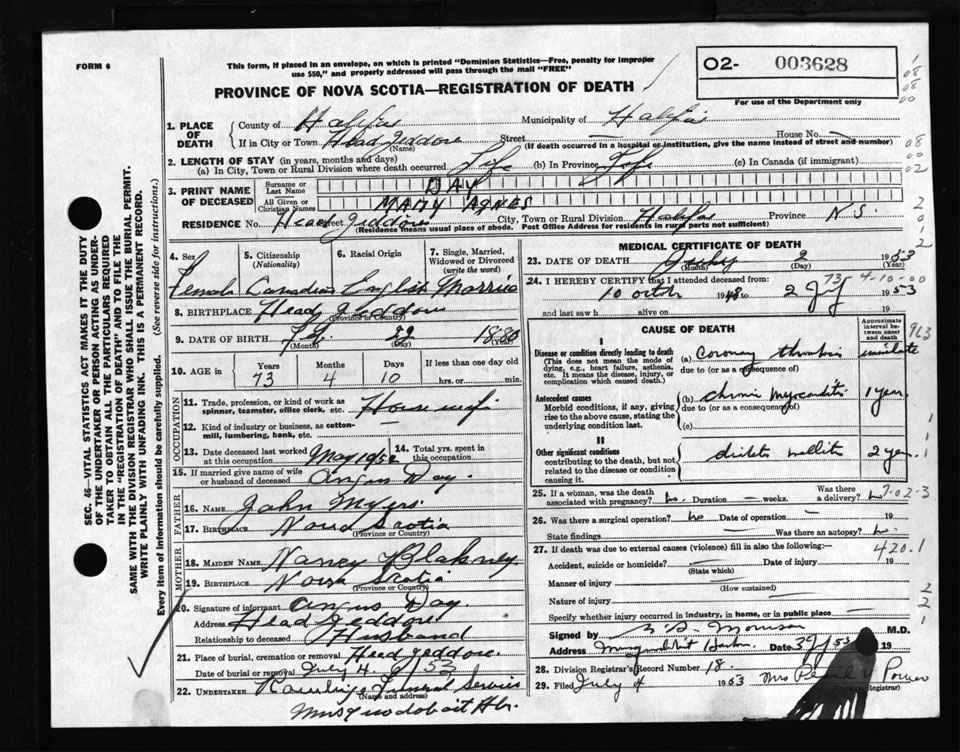 FORM 6
This form, if placed in an envelope, on which is printed "Dominion Statistics—Free, penalty for improper
use $50," and properly addressed will pass through the mail "FREE"
O2- 003628
For use of the Department only
PROVINCE OF NOVA SCOTIA—REGISTRATION OF DEATH
1. PLACE OF DEATH
County of Halifax Municipality of Halifax
If in City or Town Head Jeddore Street — House No. —
(Name) (If death occurred in a hospital or institution, give the name instead of street and number)
2. LENGTH OF STAY (in years, months and days)
(a) In City, Town or Rural Division where death occurred Life (b) In Province Life (c) In Canada (if immigrant)
3. PRINT NAME OF DECEASED
Surname or Last Name DAY
All Given or Christian Names MARY AGNES
RESIDENCE No. Head Street Jeddore City, Town or Rural Division Halifax Province N.S.
(Residence means usual place of abode. Post Office Address for residents in rural parts not sufficient)
4. Sex Female
5. Citizenship (Nationality) Canadian
6. Racial Origin English
7. Single, Married, Widowed or Divorced (write the word) Married
8. BIRTHPLACE Head Jeddore
(Province or Country)
9. DATE OF BIRTH Feb. 22 1880
(Month) (Day) (Year)
10. AGE in Years 73 Months 4 Days 10 If less than one day old hrs. or min.
OCCUPATION
11. Trade, profession, or kind of work as spinner, teamster, office clerk, etc. Housewife
12. Kind of industry or business, as cotton-mill, lumbering, bank, etc. —
13. Date deceased last worked at this occupation May 1952
14. Total yrs. spent in this occupation
15. If married give name of wife or husband of deceased Angus Day.
FATHER
16. NAME John Myers
17. BIRTHPLACE Nova Scotia
(Province or Country)
MOTHER
18. MAIDEN NAME Nancy Blakney
19. BIRTHPLACE Nova Scotia
(Province or Country)
20. Signature of informant Angus Day.
Address Head Jeddore
Relationship to deceased Husband
21. Place of burial, cremation or removal Head Jeddore.
Date of burial or removal July 4 1953
22. UNDERTAKER Rawlings Funeral Service
(Name and address)
Musquodoboit Hbr.
MEDICAL CERTIFICATE OF DEATH
23. DATE OF DEATH July 2 1953
(Month) (Day) (Year)
24. I HEREBY CERTIFY that I attended deceased from:
10 octob 1948 to 2 July 1953
and last saw h alive on 19
CAUSE OF DEATH
Approximate interval between onset and death
I
Disease or condition directly leading to death
(This does not mean the mode of dying, e.g., heart failure, asthenia, etc. It means the disease, injury, or complication which caused death.)
(a) coronary thrombosis
due to (or as a consequence of)
Antecedent causes
Morbid conditions, if any, giving rise to the above cause, stating the underlying condition last.
(b) chronic myocarditis 1 year.
due to (or as a consequence of)
(c)
II
Other significant conditions
contributing to the death, but not related to the disease or condition causing it.
diabetes mellitus 2 year.
25. If a woman, was the death associated with pregnancy? no. Duration — weeks. Was there a delivery?
26. Was there a surgical operation? no Date of operation —
State findings — Was there an autopsy?
27. If death was due to external causes (violence) fill in also the following:—
420.1
Accident, suicide or homicide? — Date of injury 19
(State which)
Manner of injury
(How sustained)
Nature of injury
Specify whether injury occurred in industry, in home, or in public place
Signed by Morrison M.D.
Address Musquodoboit Harbour Date 3 July 53 19
28. Division Registrar's Record Number 18.
29. Filed July 4 1953 Mrs Power
(Division Registrar)
SEC. 46—VITAL STATISTICS ACT MAKES IT THE DUTY
OF THE UNDERTAKER OR PERSON ACTING AS UNDER-
TAKER TO OBTAIN ALL THE PARTICULARS REQUIRED
IN THE "REGISTRATION OF DEATH" AND TO FILE THE
SAME WITH THE DIVISION REGISTRAR WHO SHALL ISSUE THE BURIAL PERMIT.
WRITE PLAINLY WITH UNFADING INK. THIS IS A PERMANENT RECORD.
Every item of information should be carefully supplied. (See reverse side for instructions.)